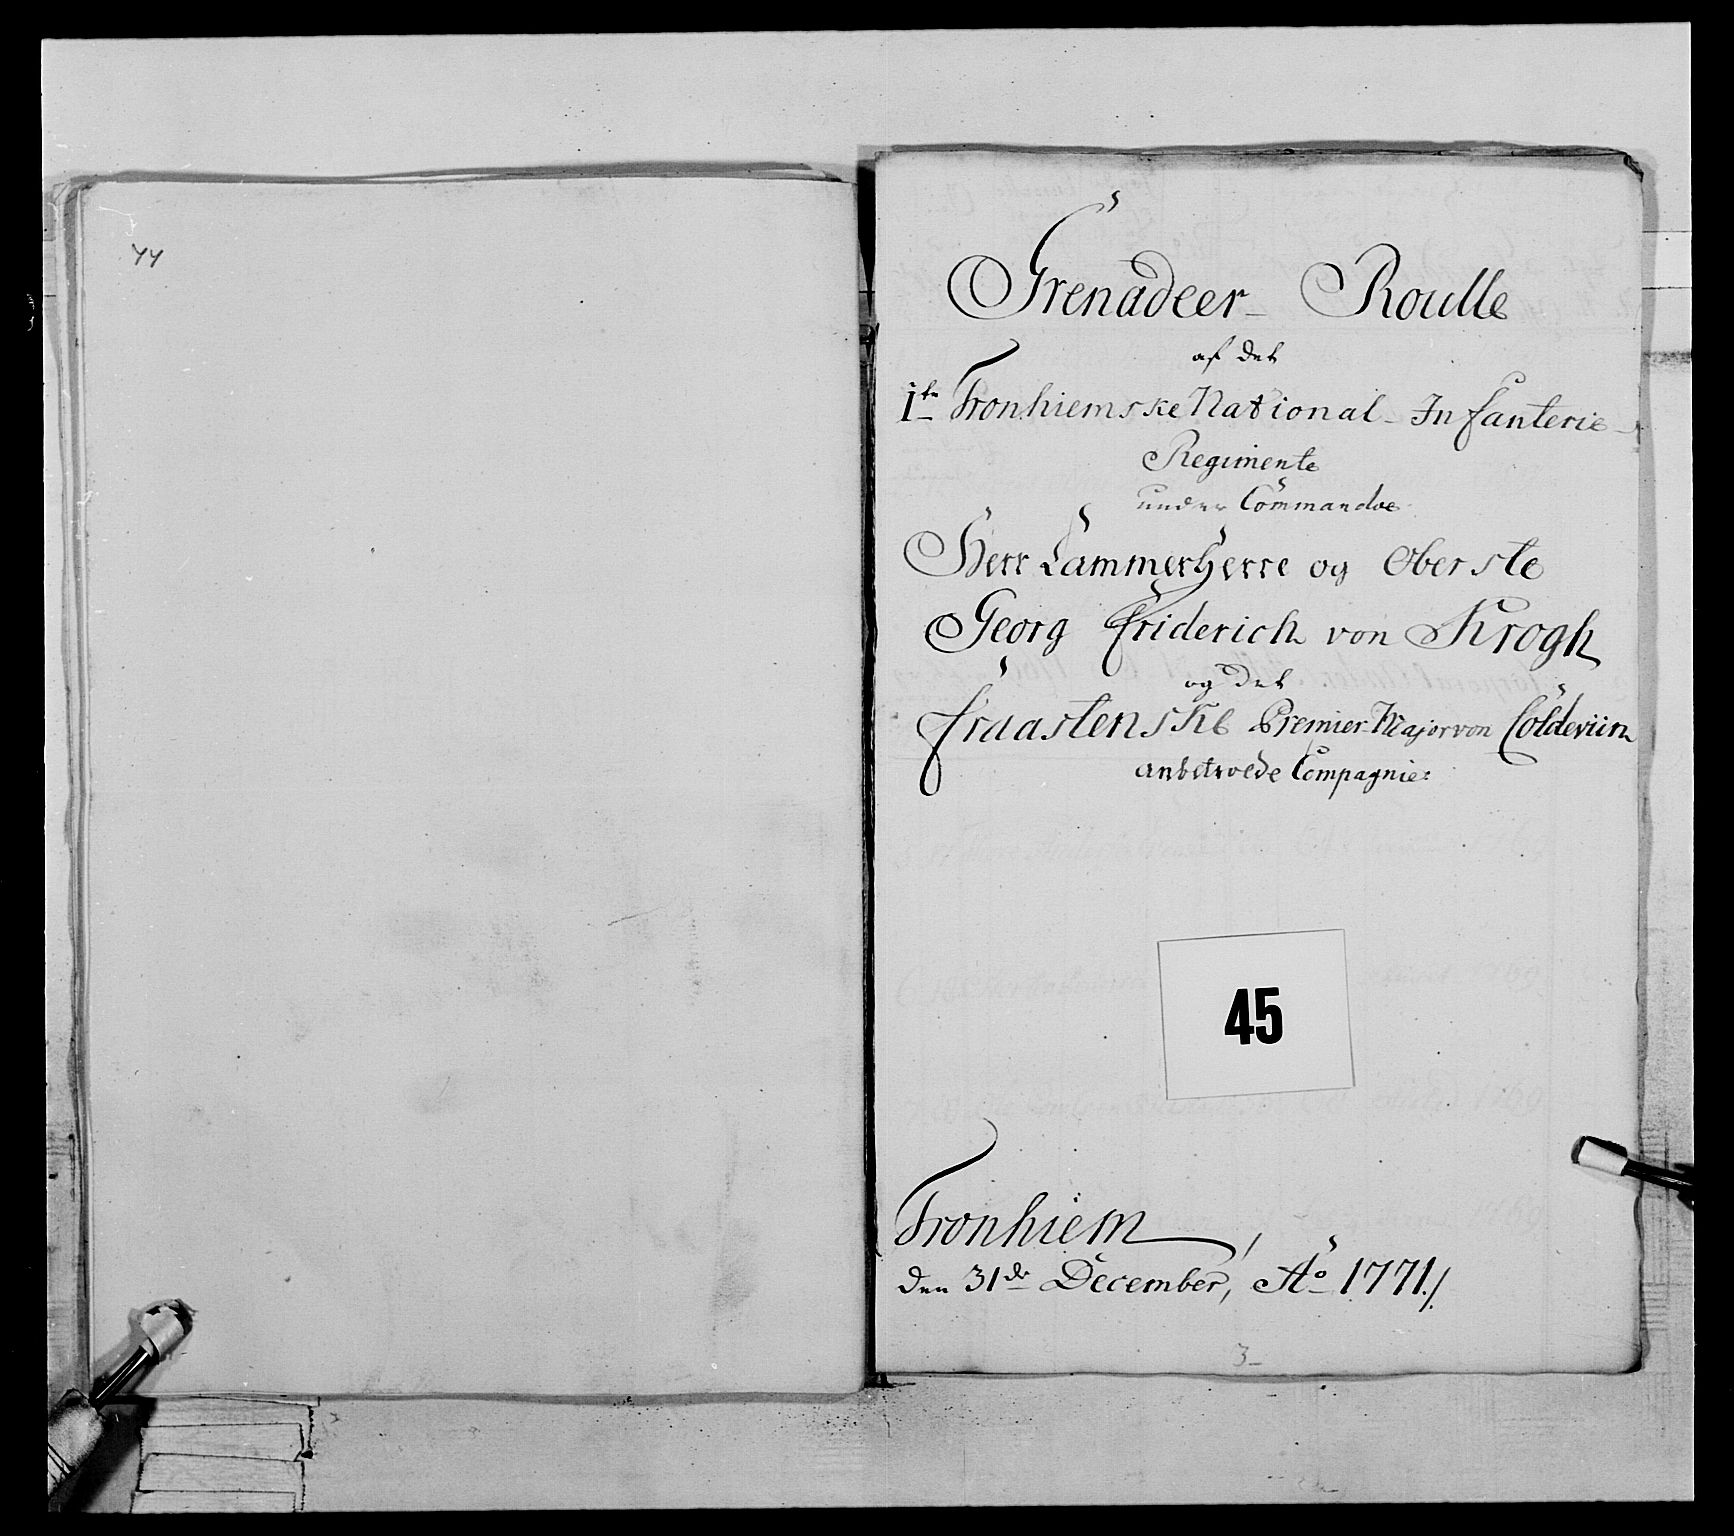 44
Grenadeer- Roulle
af det
1te Tronhiemske National- Infanterie-
Regimente
under Commandoe
Herr Cammerherre og Oberste
Georg Friderich von Krogh
og det
Fraastenske Premier-Major von Coldeviin
anbetroede Compagnie:
45
Tronhiem,
den 31de December, Ao 1771./
3-